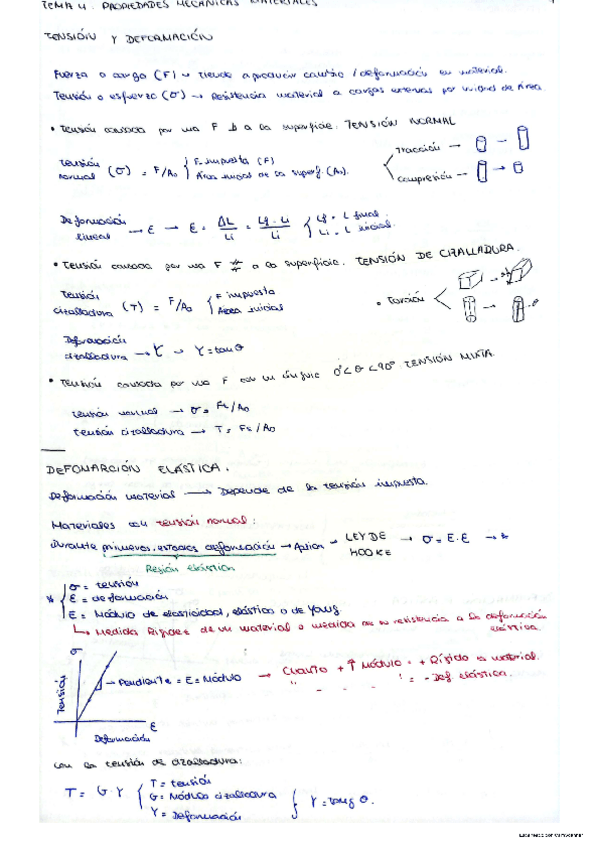 TEMA 4. PROPIEDADES MECÁNICAS MATERIALES
TENSIÓN Y DEFORMACIÓN
Fuerza o carga (F) → tiende a producir cambio / deformación en material.
Tensión o esfuerzo (σ) → Resistencia material a cargas externas por unidad de área
• Tensión causada por una F ⊥ a la superficie. TENSIÓN NORMAL
Tensión normal (σ) = F/A₀ { F. impuesta (F) Área inicial de la superf. (A₀).
Tracción →
Compresión →
Deformación lineal → ε → ε = ΔL/Li = Lf - Li/Li { Lf = L final Li = L inicial.
• Tensión causada por una F // a la superficie. TENSIÓN DE CIZALLADURA.
Tensión cizalladura (T) = F/A₀ { F impuesta Área inicial
• Torsión
Deformación cizalladura → γ → γ = tan θ
• Tensión causada por una F con un ángulo 0°<θ<90° TENSIÓN MIXTA
Tensión normal → σ = /A₀
Tensión cizalladura → T = /A₀
DEFOMARCIÓN ELÁSTICA.
Deformación material → Depende de la tensión impuesta.
Materiales con tensión normal:
Durante primeros estados deformación → LEY DE HOOKE → σ = E·ε → *
Región elástica
* σ = tensión
ε = deformación
E = Módulo de elasticidad, elástico o de Young
↳ Medida Rigidez de un material o medida de su resistencia a la deformación elástica.
σ
Tensión
Pendiente = E = Módulo → Cuanto + ↑ Módulo = + Rígido es material.
" = - Def elástica.
ε
Deformación
con la tensión de cizalladura:
T = G·γ { T = tensión G = Módulo cizalladura γ = Deformación } γ = tang θ.